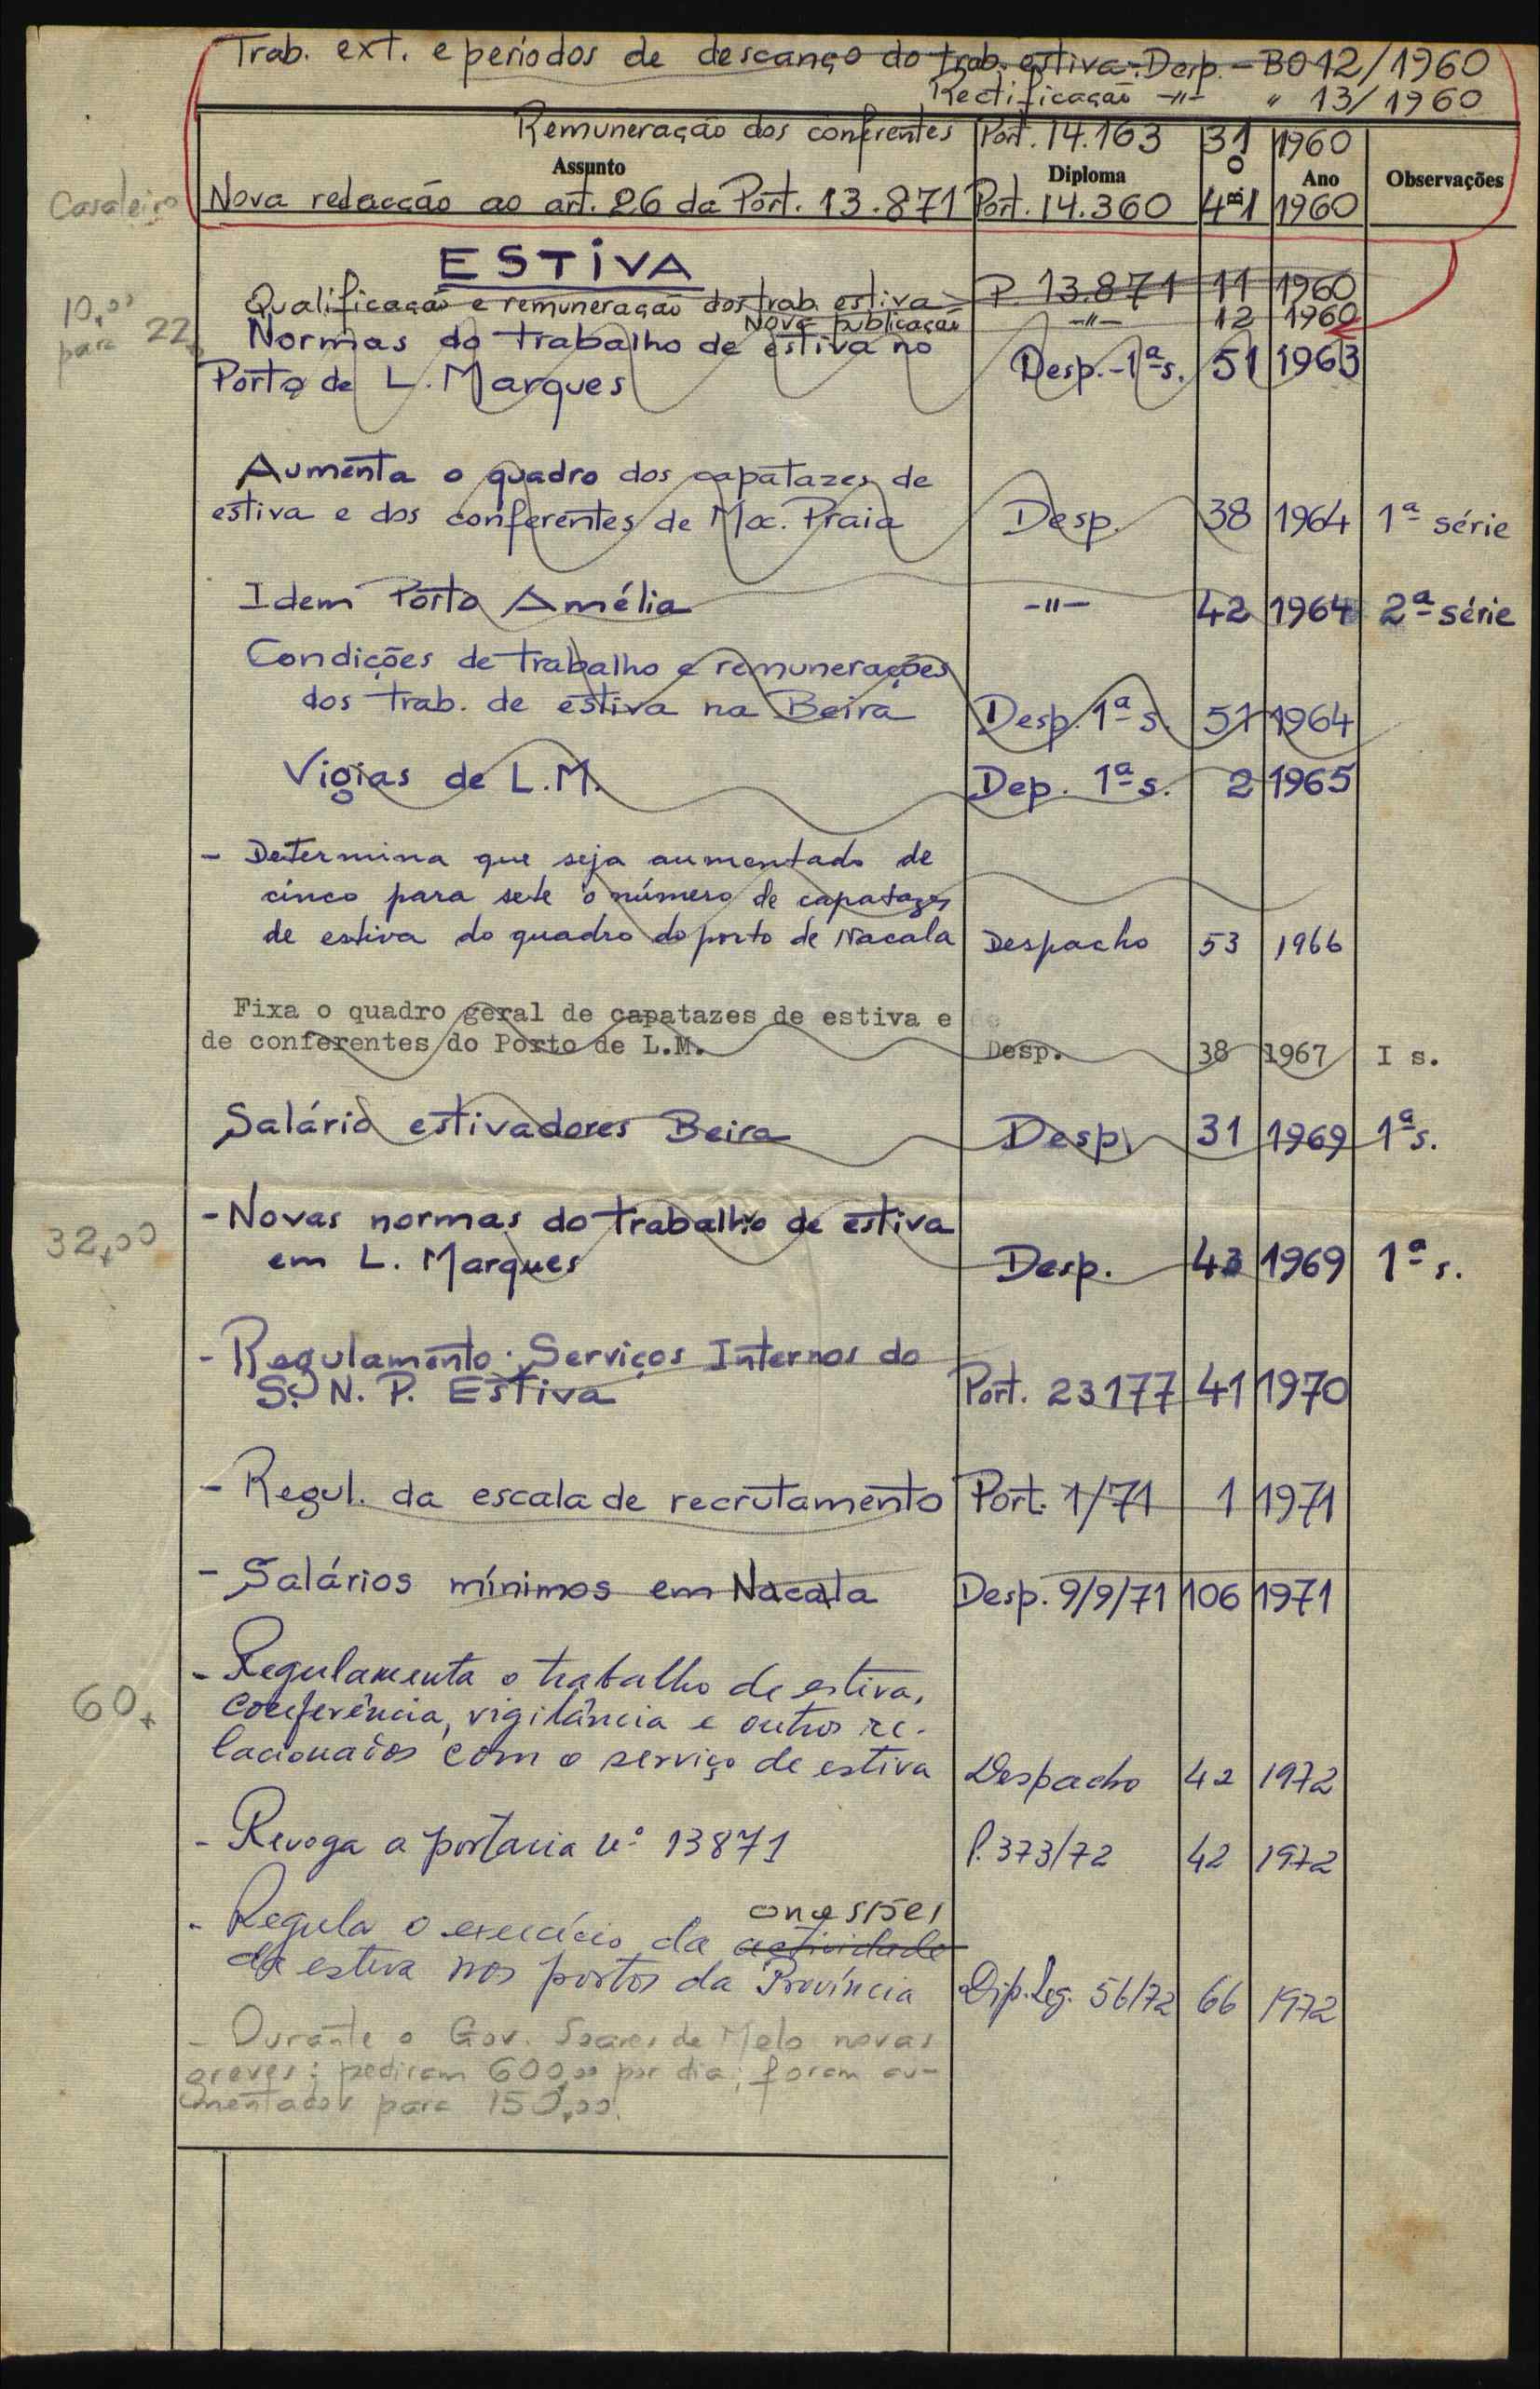 Trab. ext. e períodos de descanço do trab. estiva - Desp. - BO 12/1960
Rectificação -"- " 13/1960
Remuneração dos conferentes Port. 14.163 31 1960
Assunto Diploma B O Ano Observações
Casaleiro
Nova redacção ao art. 26 da Port. 13.871 Port. 14.360 41 1960
ESTIVA
Qualificação e remuneração dos trab. estiva P. 13.871 11 1960
Nova publicação -"- 12 1960
10,00
para 22,
Normas do trabalho de estiva no
Porto de L. Marques Desp. - 1ª s. 51 1963
Aumenta o quadro dos capatazes de
estiva e dos conferentes de Moc. Praia Desp. 38 1964 1ª série
Idem Pôrto Amélia -"- 42 1964 2ª série
Condições de trabalho e remunerações
dos trab. de estiva na Beira Desp. 1ª s. 51 1964
Vigias de L.M. Dep. 1ª s. 2 1965
- Determina que seja aumentado de
cinco para sete o número de capatazes
de estiva do quadro do porto de Nacala Despacho 53 1966
Fixa o quadro geral de capatazes de estiva e
de conferentes do Porto de L.M. Desp. 38 1967 I s.
Salário estivadores Beira Desp. 31 1969 1ª s.
32,00
- Novas normas do trabalho de estiva
em L. Marques Desp. 43 1969 1ª s.
- Regulamento Serviços Internos do
S. N. P. Estiva Port. 23177 41 1970
- Regul. da escala de recrutamento Port. 1/71 1 1971
- Salários mínimos em Nacala Desp. 9/9/71 106 1971
60,
- Regulamenta o trabalho de estiva,
conferência, vigilância e outros re-
lacionados com o serviço de estiva Despacho 42 1972
- Revoga a portaria nº 13871 P. 373/72 42 1972
oncessões
- Regula o exercício da actividade
de estiva nos portos da Província Dip. Leg. 56/72 66 1972
- Durante o Gov. Soares de Melo novas
greves; pediram 600,00 por dia; foram au-
mentados para 150,00.